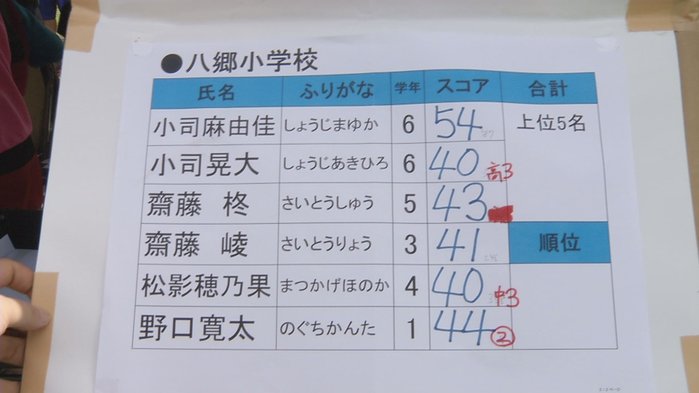 ●八郷小学校
氏名 ふりがな 学年 スコア 合計
小司麻由佳 しょうじまゆか 6 54 上位5名
小司晃大 しょうじあきひろ 6 40 高3
齋藤 柊 さいとうしゅう 5 43
齋藤 崚 さいとうりょう 3 41 順位
松影穂乃果 まつかげほのか 4 40 中3
野口寛太 のぐちかんた 1 44 ②